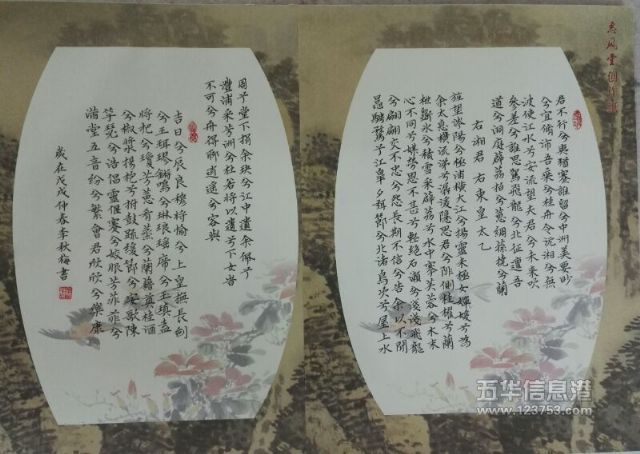 君不行兮夷猶蹇誰留兮中洲美要眇
兮宜脩沛吾乘兮桂舟令沅湘兮無
波使江水兮安流望夫君兮未來吹
參差兮誰思駕飛龍兮北征邅吾
道兮洞庭薜荔拍兮蕙綢蓀橈兮蘭
右湘君 右東皇太乙
旌望涔陽兮極浦橫大江兮揚靈未極女嬋媛兮為
余太息橫流涕兮潺湲隱思君兮陫側桂櫂兮蘭
枻斲冰兮積雪采薜荔兮水中搴芙蓉兮木末
心不同兮媒勞恩不甚兮輕絕石瀨兮淺淺飛龍
兮翩翩交不忠兮怨長期不信兮告余以不閒
鼂騁騖兮江皋夕弭節兮北渚鳥次兮屋上水
周兮堂下捐余玦兮江中遺余佩兮
澧浦采芳洲兮杜若將以遺兮下女時
不可兮再得聊逍遙兮容與
吉日兮辰良穆將愉兮上皇撫長劍
兮玉珥璆鏘鳴兮琳琅瑤席兮玉瑱盍
將把兮瓊芳蕙肴蒸兮蘭藉奠桂酒
兮椒漿揚枹兮拊鼓疏緩節兮安歌陳
竽瑟兮浩倡靈偃蹇兮姣服芳菲菲兮
滿堂五音紛兮繁會君欣欣兮樂康
歲在戊戌仲春李秋梅書
五华信息港
www.123753.com